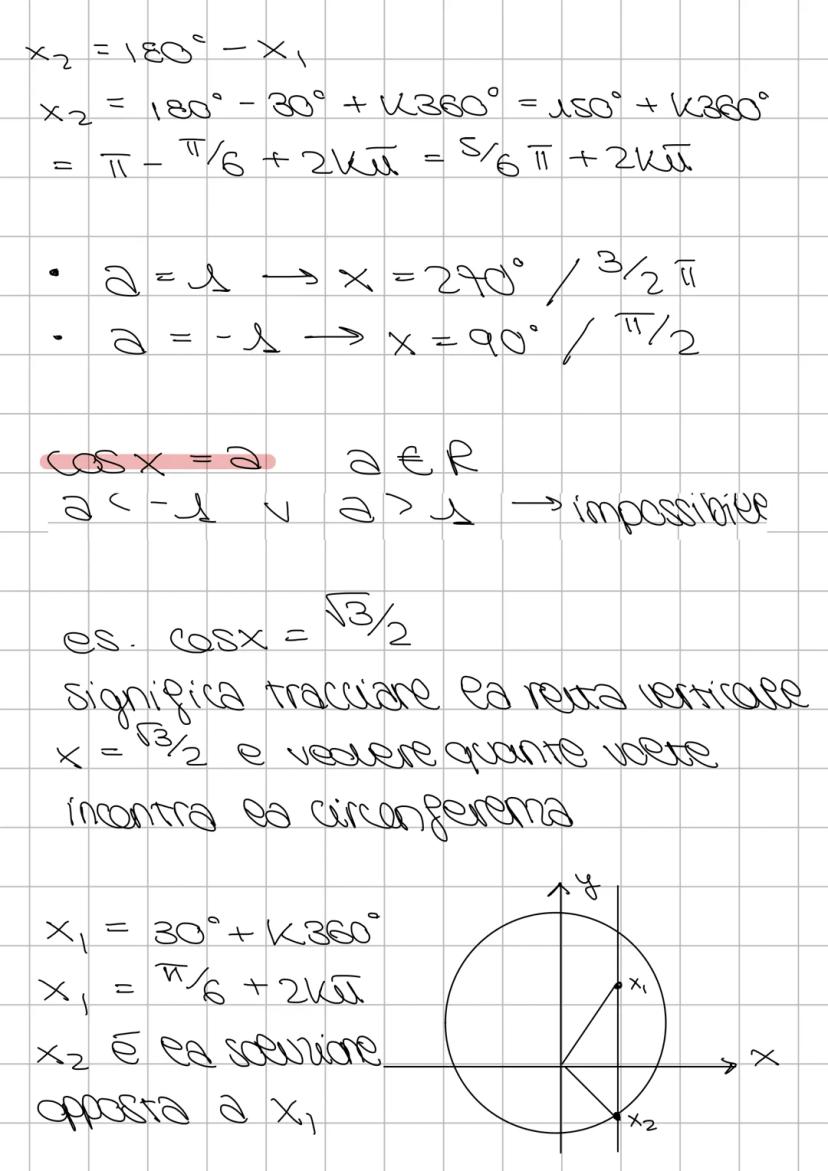 x₂ = 180° - x₁
x₂ = 180° - 30° + K360° = 150° + K360°
= π - π/6 + 2Kπ = 5/6 π + 2Kπ
• a = 1 → x = 270° / 3/2 π
• a = -1 → x = 90° / π/2
cosx = a a ∈ R
a < -1 v a > 1 → impossibile
es. cosx = √3/2
significa tracciare la retta verticale
x = √3/2 e vedere quante volte
incontra la circonferenza
y
x₁ = 30° + K360°
x₁ = π/6 + 2Kπ
x₁
x₂ è la soluzione
x
opposta a x₁
x₂